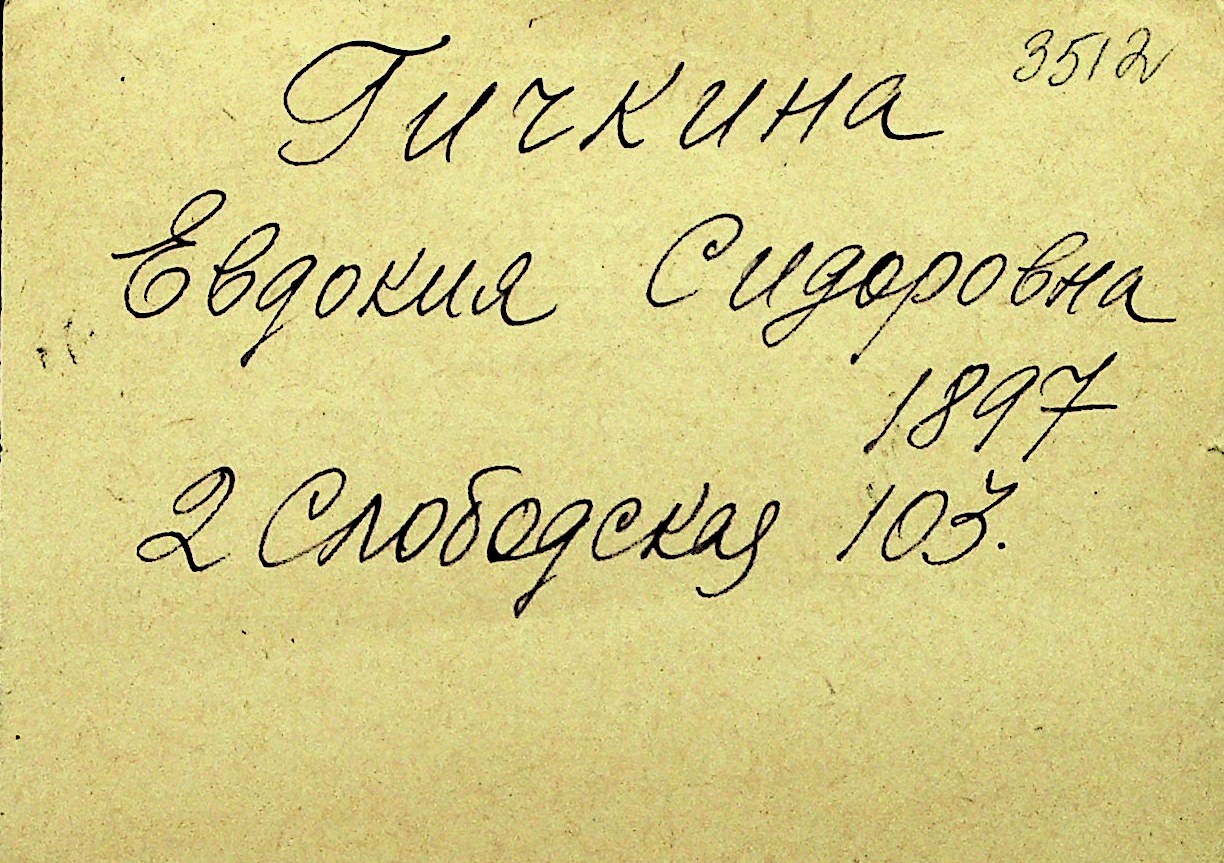 3512
Гичкина
Евдокия Сидоровна
1897
2 Слободская 103.